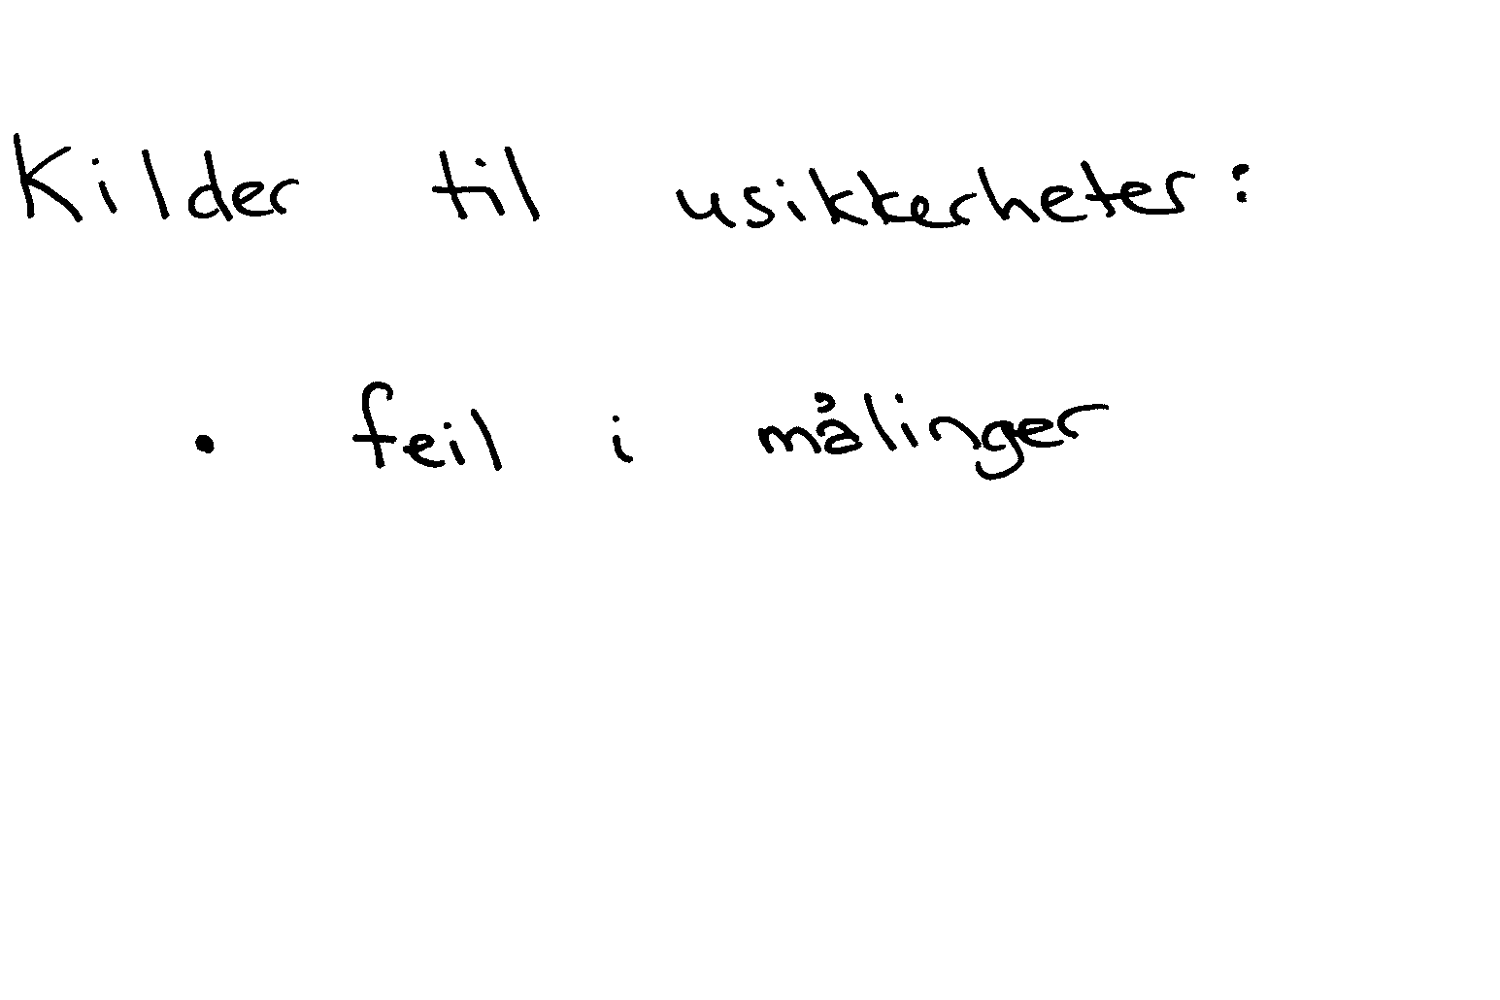 Kilder til usikkerheter:
• feil i målinger